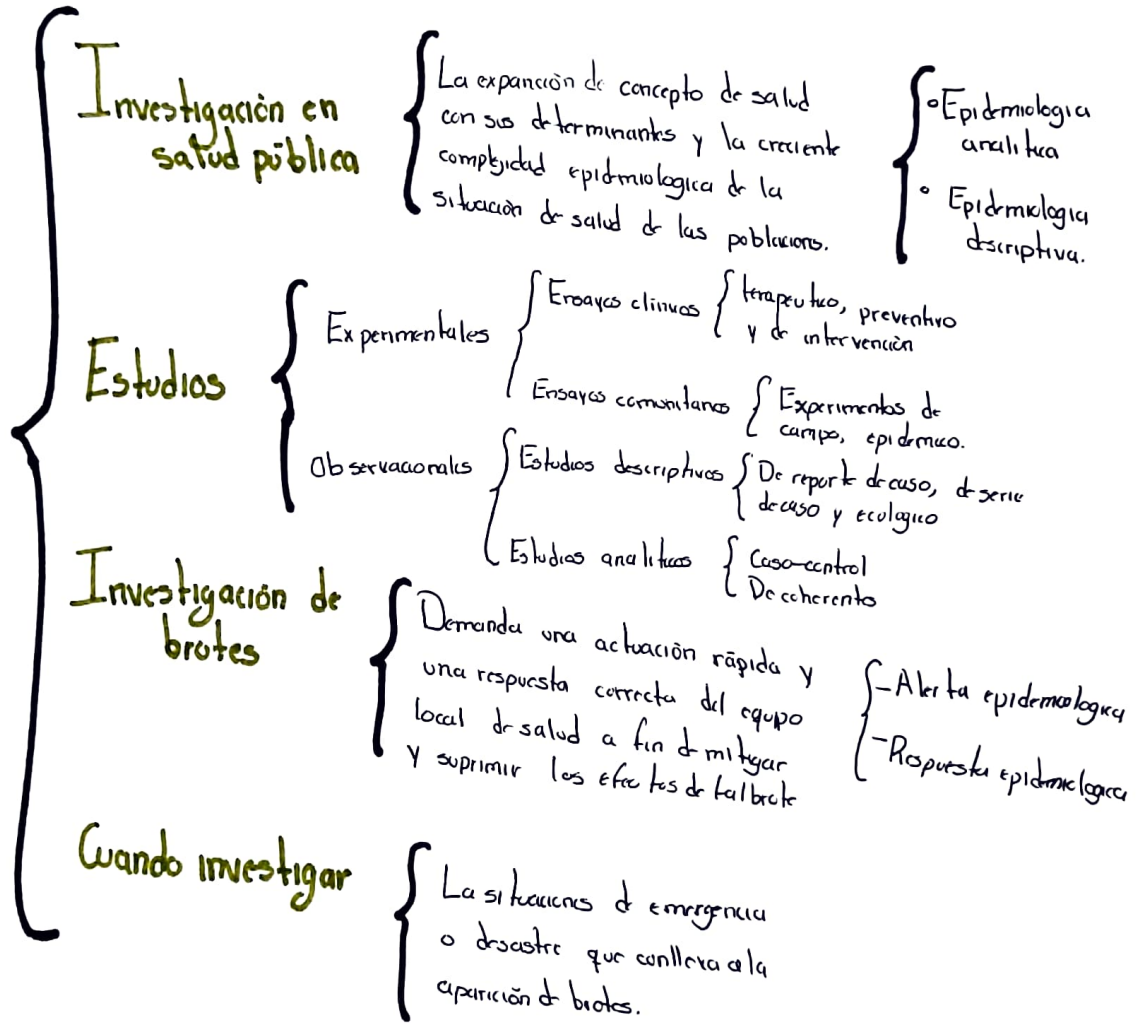 Investigación en
salud pública
La expanción de concepto de salud
con sus determinantes y la creciente
complejidad epidmiologica de la
situación de salud de las poblacions.
• Epidemiologia
analitica
• Epidemiologia
descriptiva.
Estudios
Experimentales
Ensayos clinicos
terapeutico, preventivo
y de intervención
Ensayos comunitarios
Experimentos de
campo, epidemico.
Observacionales
Estudios descriptivos
De reporte de caso, de serie
de caso y ecologico
Estudios analiticos
Caso-control
De coherento
Investigación de
brotes
Demanda una actuación rápida y
una respuesta correcta del equipo
local de salud a fin de mitigar
y suprimir los efectos de tal brote
- Alerta epidemiologica
- Respuesta epidemiologica
Cuando investigar
La situaciones de emergencia
o desastre que conlleva a la
aparición de brotes.